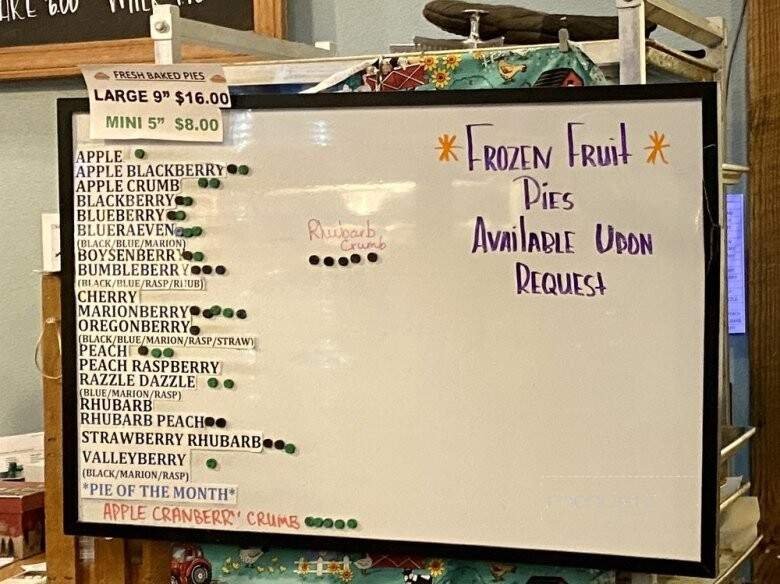 FRESH BAKED PIES
LARGE 9" $16.00
MINI 5" $8.00
APPLE
APPLE BLACKBERRY
APPLE CRUMB
BLACKBERRY
BLUEBERRY
BLUERAEVEN
(BLACK/BLUE/MARION)
BOYSENBERRY
BUMBLEBERRY
(BLACK/BLUE/RASP/RHUB)
CHERRY
MARIONBERRY
OREGONBERRY
(BLACK/BLUE/MARION/RASP/STRAW)
PEACH
PEACH RASPBERRY
RAZZLE DAZZLE
(BLUE/MARION/RASP)
RHUBARB
RHUBARB PEACH
STRAWBERRY RHUBARB
VALLEYBERRY
(BLACK/MARION/RASP)
*PIE OF THE MONTH*
APPLE CRANBERRY CRUMB
Rhubarb
Crumb
* FROZEN FRUIT *
PIES
AVAILABLE UPON
REQUEST